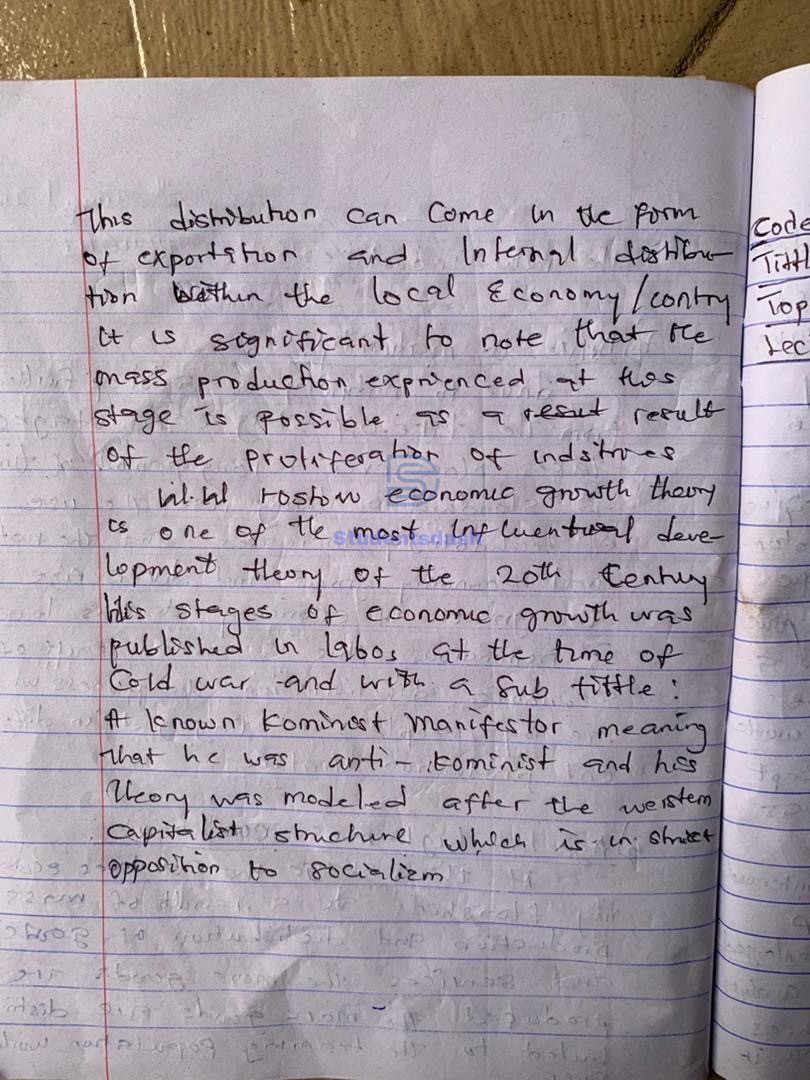 This distribution can Come in the form
of exportation and Internal distribu-
tion within the local Economy/contry
It is significant to note that the
mass production exprienced at this
stage is possible as a result result
of the proliferation of indstries
W.W rostow economic growth theory
is one of the most Influentual deve-
lopment theory of the 20th Century
His stages of economic growth was
published in 1960s at the time of
Cold war and with a Sub tittle:
A known Kominist Manifestor meaning
that he was anti-kominist and his
theory was modeled after the western
capitalist structure which is in strict
opposition to socialism
Studentsdash
Code
Tittl
Top
Lec